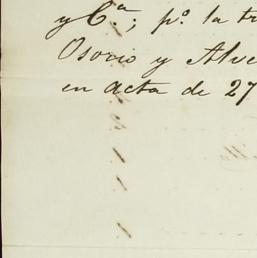 y C.ª; p.º la tr
Osorio y Alve
en acta de 27